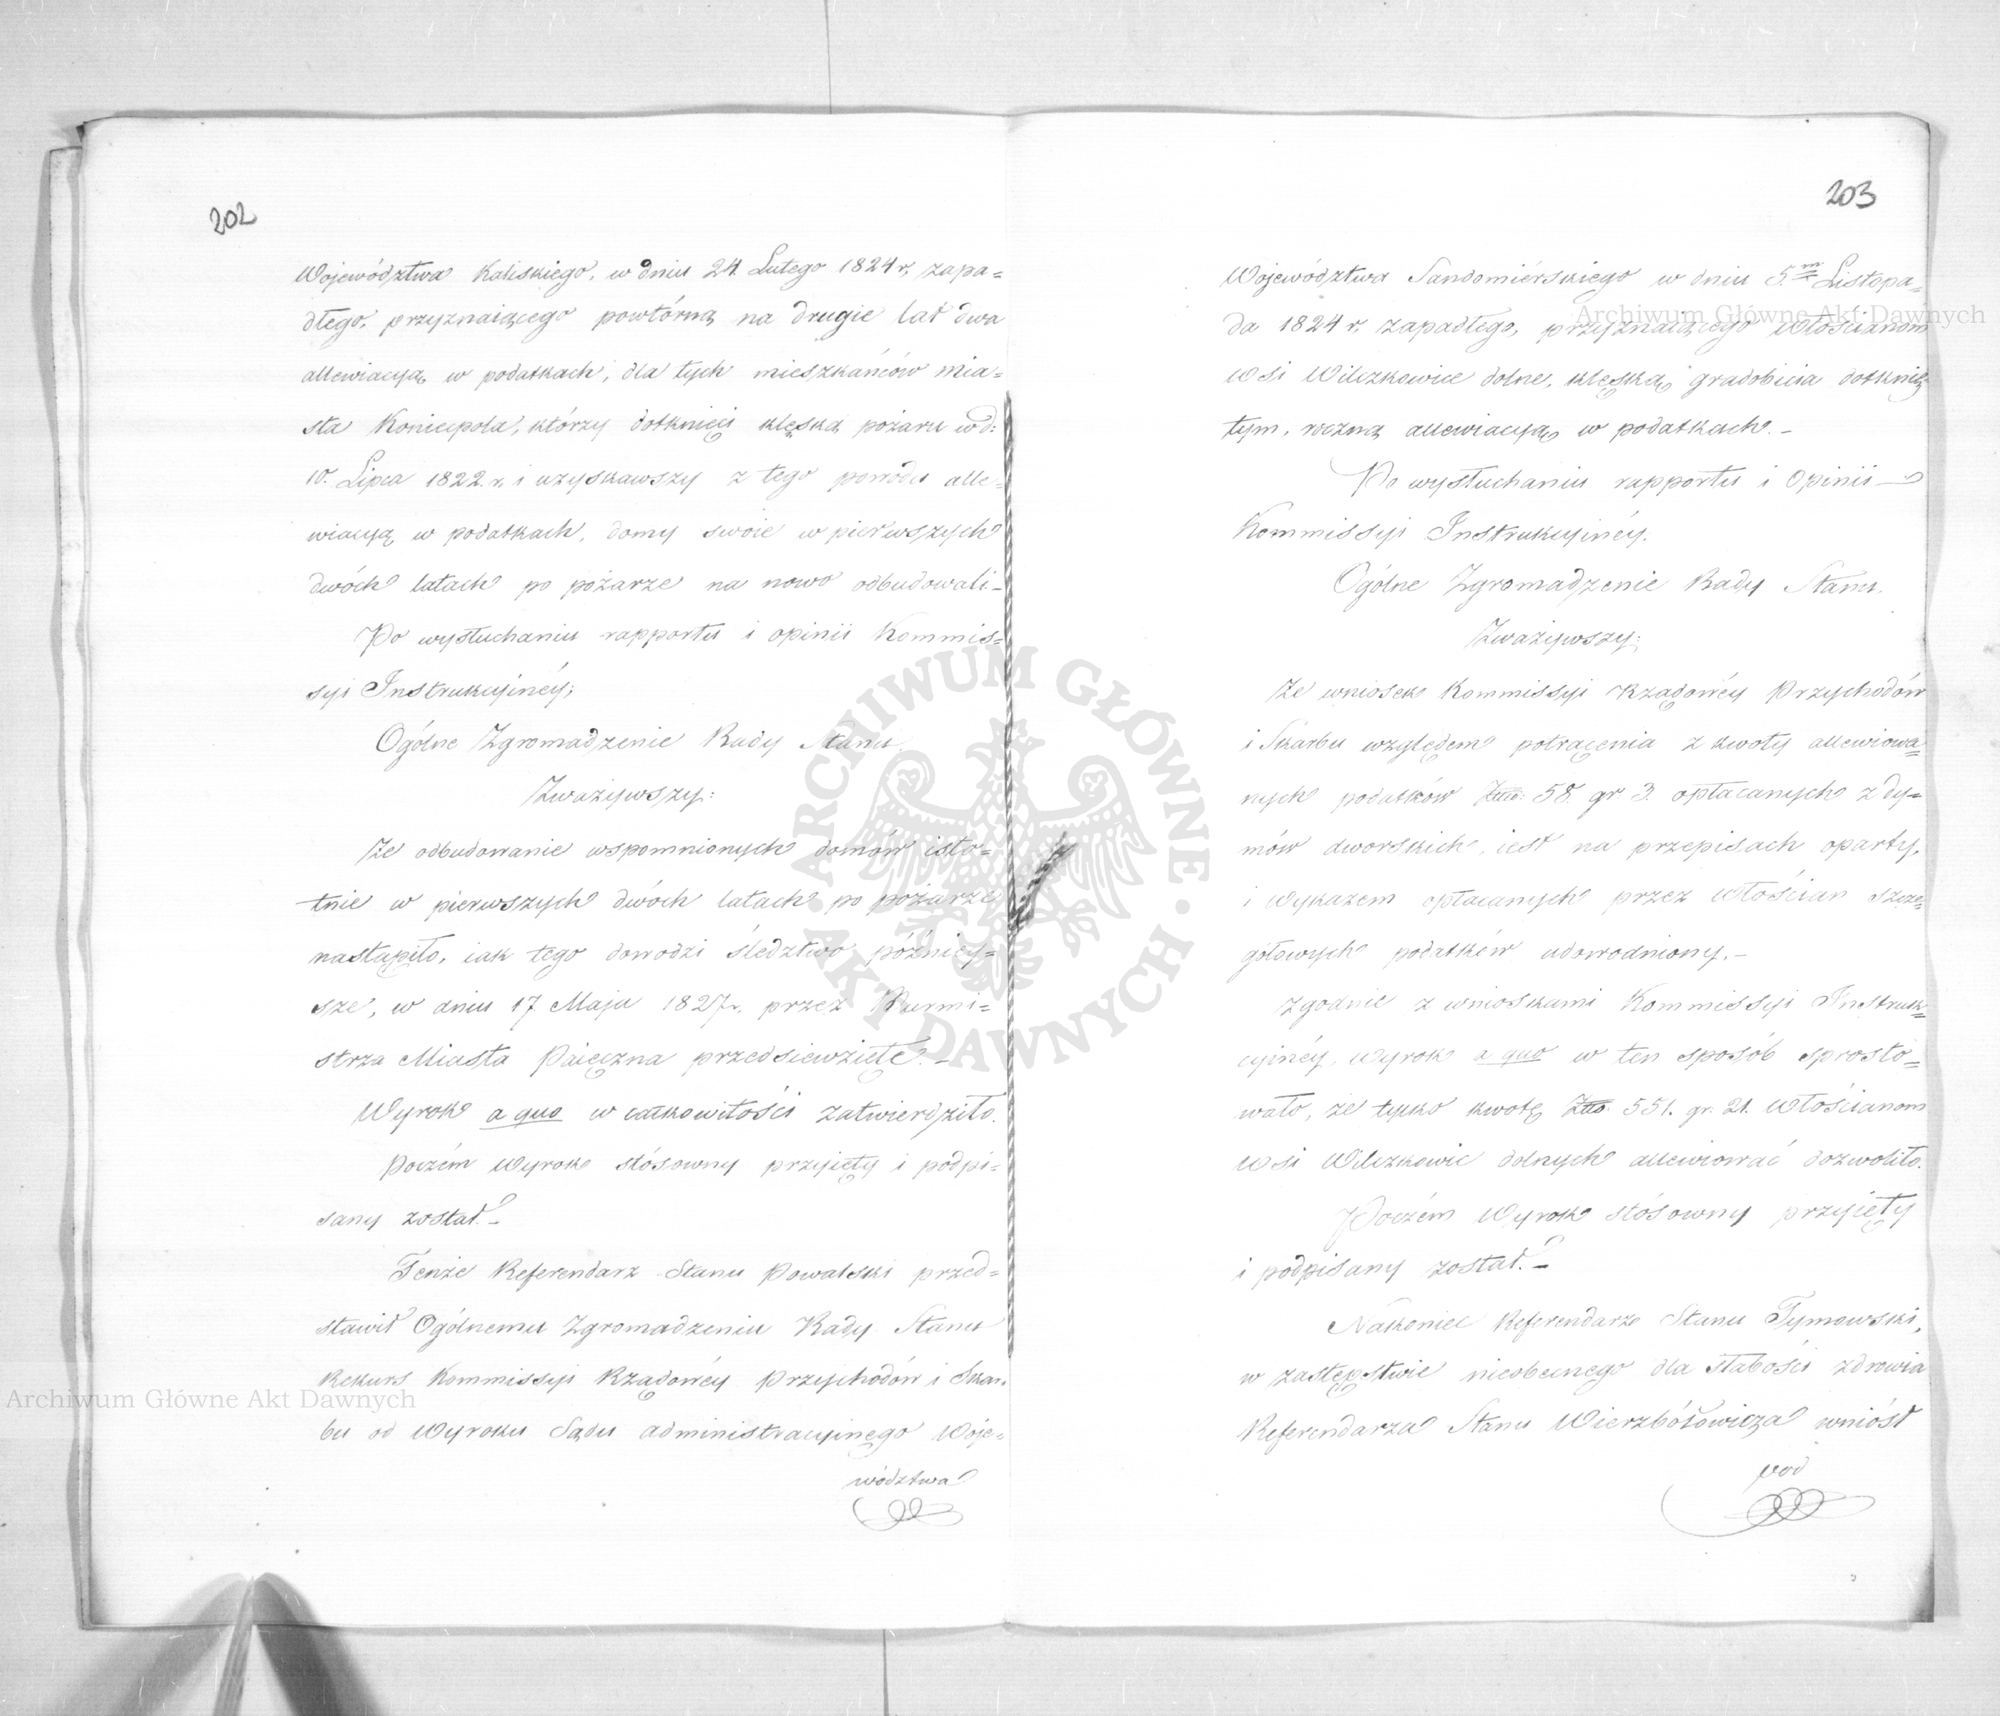 202
Województwa Kaliskiego, w dniu 24 Lutego 1824 r, zapa=
dłego, przyznaiącego powtórną na drugie lat dwa
allewiacyą w podatkach, dla tych mieszkańców mia=
sta Koniecpola, którzy dotknięci klęską pożaru w d:
10. Lipca 1822. r. i uzyskawszy z tego powodu alle=
wiacyą w podatkach, domy swoie w pierwszych
dwóch latach po pożarze na nowo odbudowali._
Po wysłuchaniu rapportu i opinii Kommis=
syi Instrukcyinéy;
Ogólne Zgromadzenie Rady Stanu.
Zważywszy:
Że odbudowanie wspomnionych domów isto=
tnie w pierwszych dwóch latach po pożarze
nastąpiło, iak tego dowodzi śledztwo późniey=
sze, w dniu 17 Maja 1827 r. przez Burmi=
strza Miasta Paięczna przedsiewzięte._
Wyrok a quo w całkowitości zatwierdziło.
Poczém Wyrok stósowny przyięty i podpi=
sany został._
Tenże Referendarz Stanu Powalski przed=
stawił Ogólnemu Zgromadzeniu Rady Stanu
Rekurs Kommissyi Rządowéy Przychodów i Skar=
bu od Wyroku Sądu administracyinego Woje=
wództwa
203
Województwa Sandomiérskiego w dniu 5.m Listopa=
da 1824 r. zapadłego, przyznaiącego Włościanom
Wsi Wilczkowice dolne, klęską gradobicia dotknię=
tym, roczną allewiacyą w podatkach._
Po wysłuchaniu rapportu i Opinii
Kommissyi Instrukcyinéy.
Ogólne Zgromadzenie Rady Stanu.
Zważywszy:
Że wniosek Kommissyi Rządowéy Przychodów
i Skarbu względem potrącenia z kwoty allewiowa=
nych podatków Złto. 58. gr 3. opłacanych z dy=
mów dworskich, iest na przepisach oparty,
i Wykazem opłacanych przez Włościan szcze=
gółowych podatków udowodniony._
Zgodnie z wnioskami Kommissyi Instruk=
cyinéy, Wyrok a quo w ten sposób sprosto=
wało, że tylko kwotę Złto. 551. gr. 21. Włościanom
Wsi Wilczkowic dolnych allewiować dozwoliło.
Poczém Wyrok stósowny przyięty
i podpisany został._
Nakoniec Referendarz Stanu Tymowski,
w zastępstwie nieobecnego dla słabości zdrowia
Referendarza Stanu Wierzbółowicza wniósł
pod
Archiwum Główne Akt Dawnych
Archiwum Główne Akt Dawnych
ARCHIWUM GŁÓWNE · AKT DAWNYCH ·